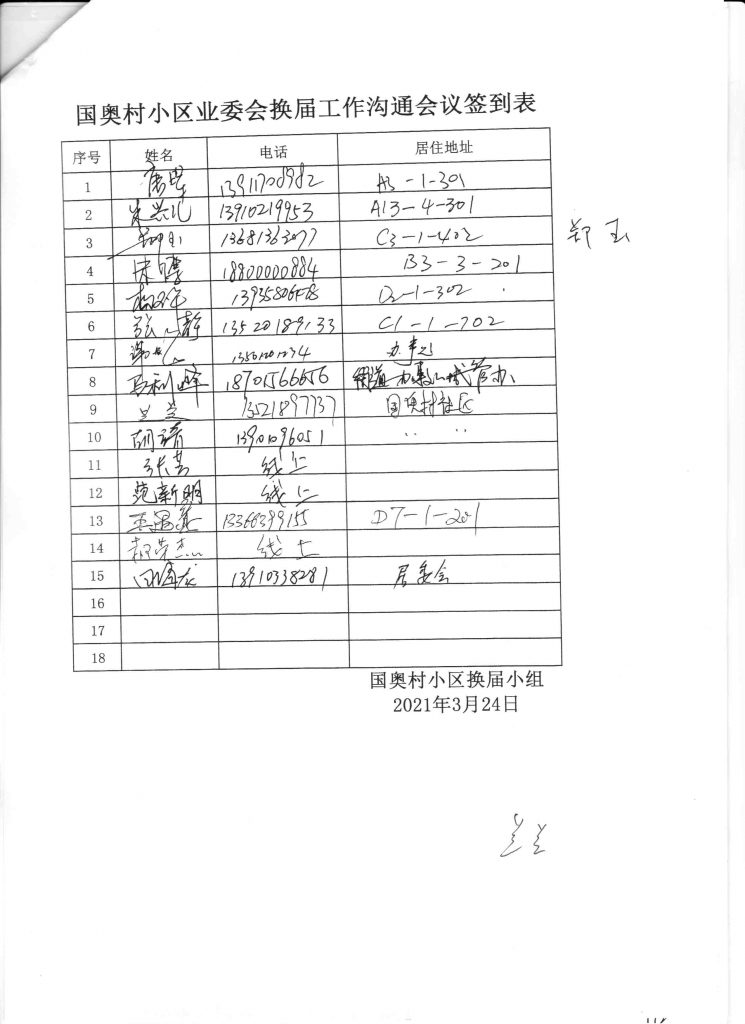 国奥村小区业委会换届工作沟通会议签到表
序号 姓名 电话 居住地址
1 13911708982 A3-1-301
2 13910219953 A13-4-301
3 13681363077 C3-1-402 郑玉
4 宋 18800000884 B3-3-201
5 D2-1-302
6 张 静 13520189133 C1-1-702
7
8 马利峰 18701566656
9 兰兰 13521897737 国奥村社区
10 胡 13901096051 〃 〃
11 线上
12 范新明 线上
13 13366399155 D7-1-201
14 线上
15 13910338281 居委会
16
17
18
国奥村小区换届小组
2021年3月24日
兰兰